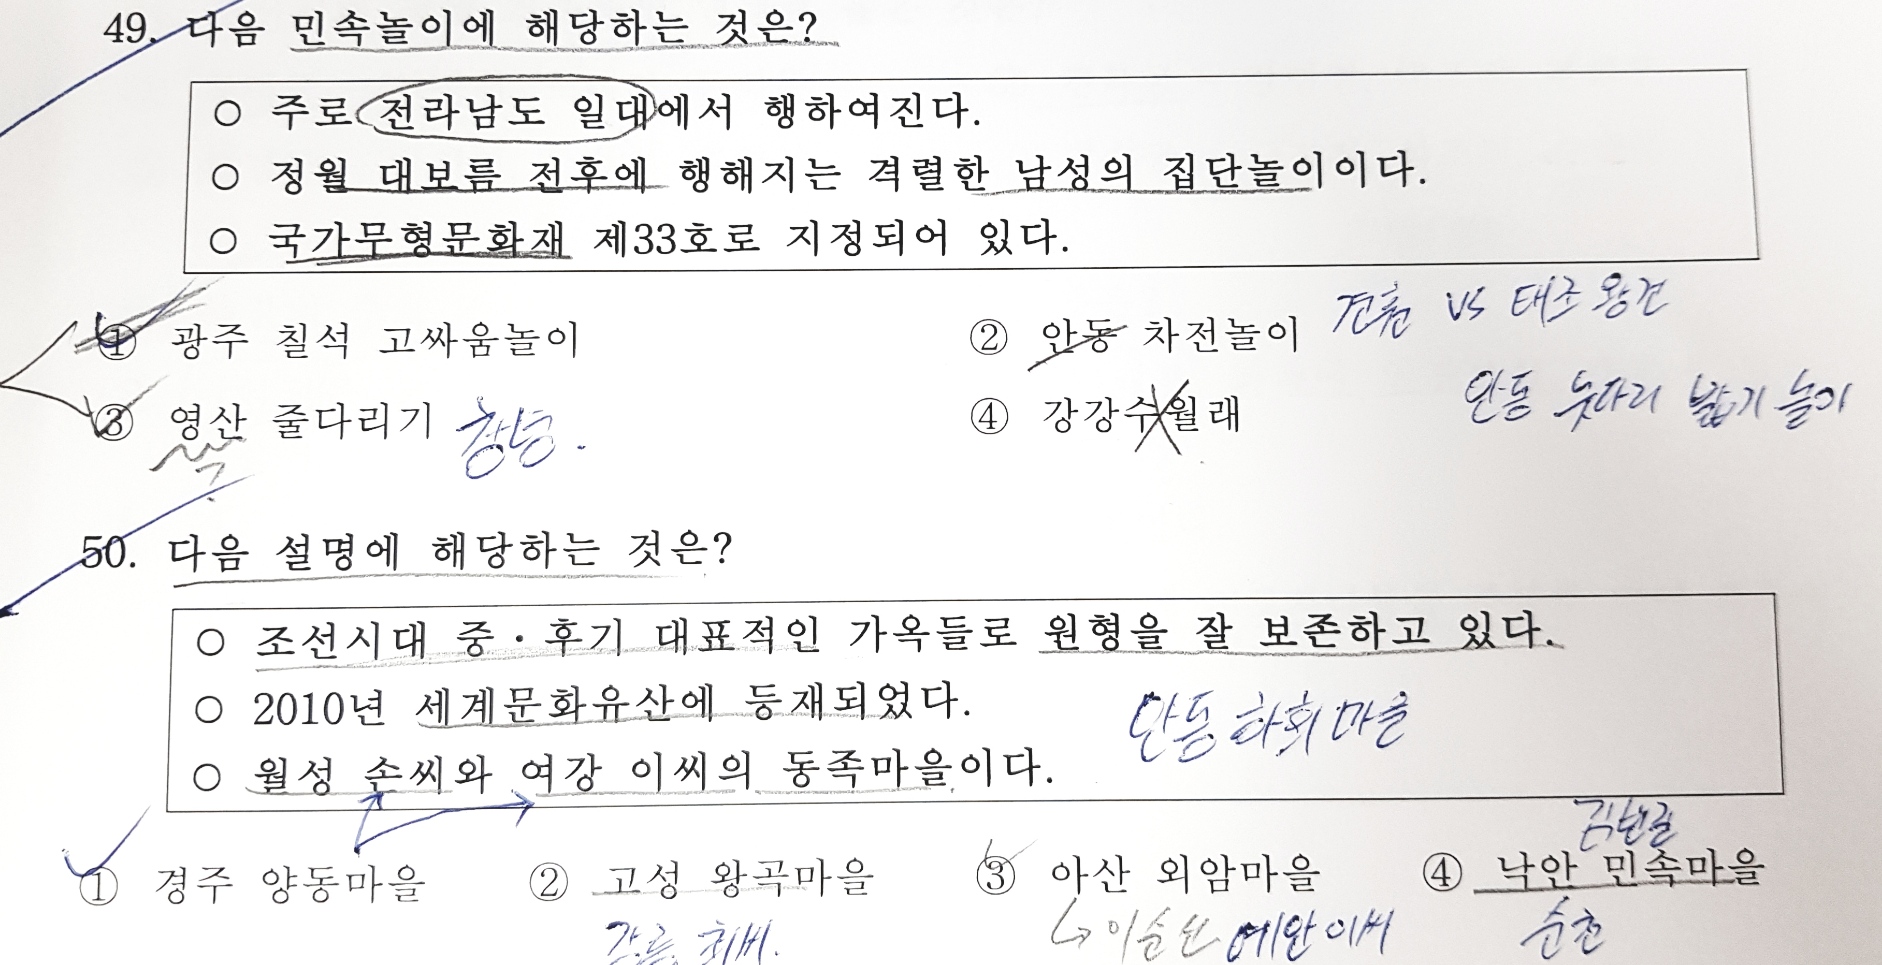 49. 다음 민속놀이에 해당하는 것은?
○ 주로 전라남도 일대에서 행하여진다.
○ 정월 대보름 전후에 행해지는 격렬한 남성의 집단놀이이다.
○ 국가무형문화재 제33호로 지정되어 있다.
견훤 VS 태조 왕건
① 광주 칠석 고싸움놀이 ② 안동 차전놀이
안동 놋다리 밟기 놀이
③ 영산 줄다리기 창녕. ④ 강강수월래
50. 다음 설명에 해당하는 것은?
○ 조선시대 중·후기 대표적인 가옥들로 원형을 잘 보존하고 있다.
○ 2010년 세계문화유산에 등재되었다.
안동 하회마을
○ 월성 손씨와 여강 이씨의 동족마을이다.
① 경주 양동마을 ② 고성 왕곡마을 ③ 아산 외암마을 ④ 낙안 민속마을
예안이씨 순천